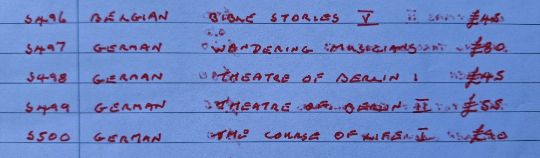 5496 BELGIAN BIBLE STORIES V £45
5497 GERMAN WANDERING MUSICIANS £30.
5498 GERMAN THEATRE OF BERLIN I £45
5499 GERMAN THEATRE OF BERLIN II £55
5500 GERMAN THE COURSE OF LIFE I